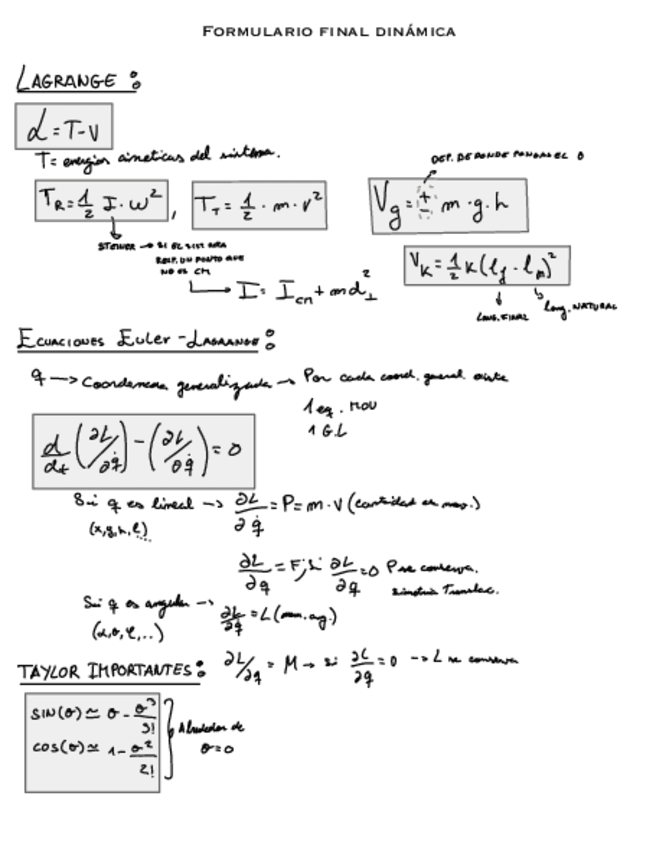 FORMULARIO FINAL DINÁMICA
LAGRANGE :
L = T - V
T = energias cineticas del sistema.
DEP. DE DONDE PONGAS EL 0
T_R = 1/2 I · ω², T_T = 1/2 · m · v²
V_g = ± m · g · h
STEINER → SI EL SIST GIRA
RESP. UN PUNTO QUE
NO ES CM
I = I_cm + m d⊥²
V_K = 1/2 K (l_f - l_n)²
LONG. FINAL
long. NATURAL
ECUACIONES EULER-LAGRANGE :
q → Coordenada generalizada → Por cada coord. general existe
1 eq. MOV
1 G.L
d/dt (∂L/∂q̇) - (∂L/∂q̇) = 0
Si q es lineal → ∂L/∂q̇ = P = m · v (cantidad de mov.)
(x, y, h, l)
∂L/∂q = F; si ∂L/∂q = 0 P se conserva.
simetria Translac.
Si q es angular → ∂L/∂q̇ = L (mom. ang.)
(α, θ, φ, ..)
∂L/∂q = M → si ∂L/∂q = 0 → L se conserva
TAYLOR IMPORTANTES :
SIN(θ) ≃ θ - θ³/3!
COS(θ) ≃ 1 - θ²/2!
Alrededor de
θ = 0